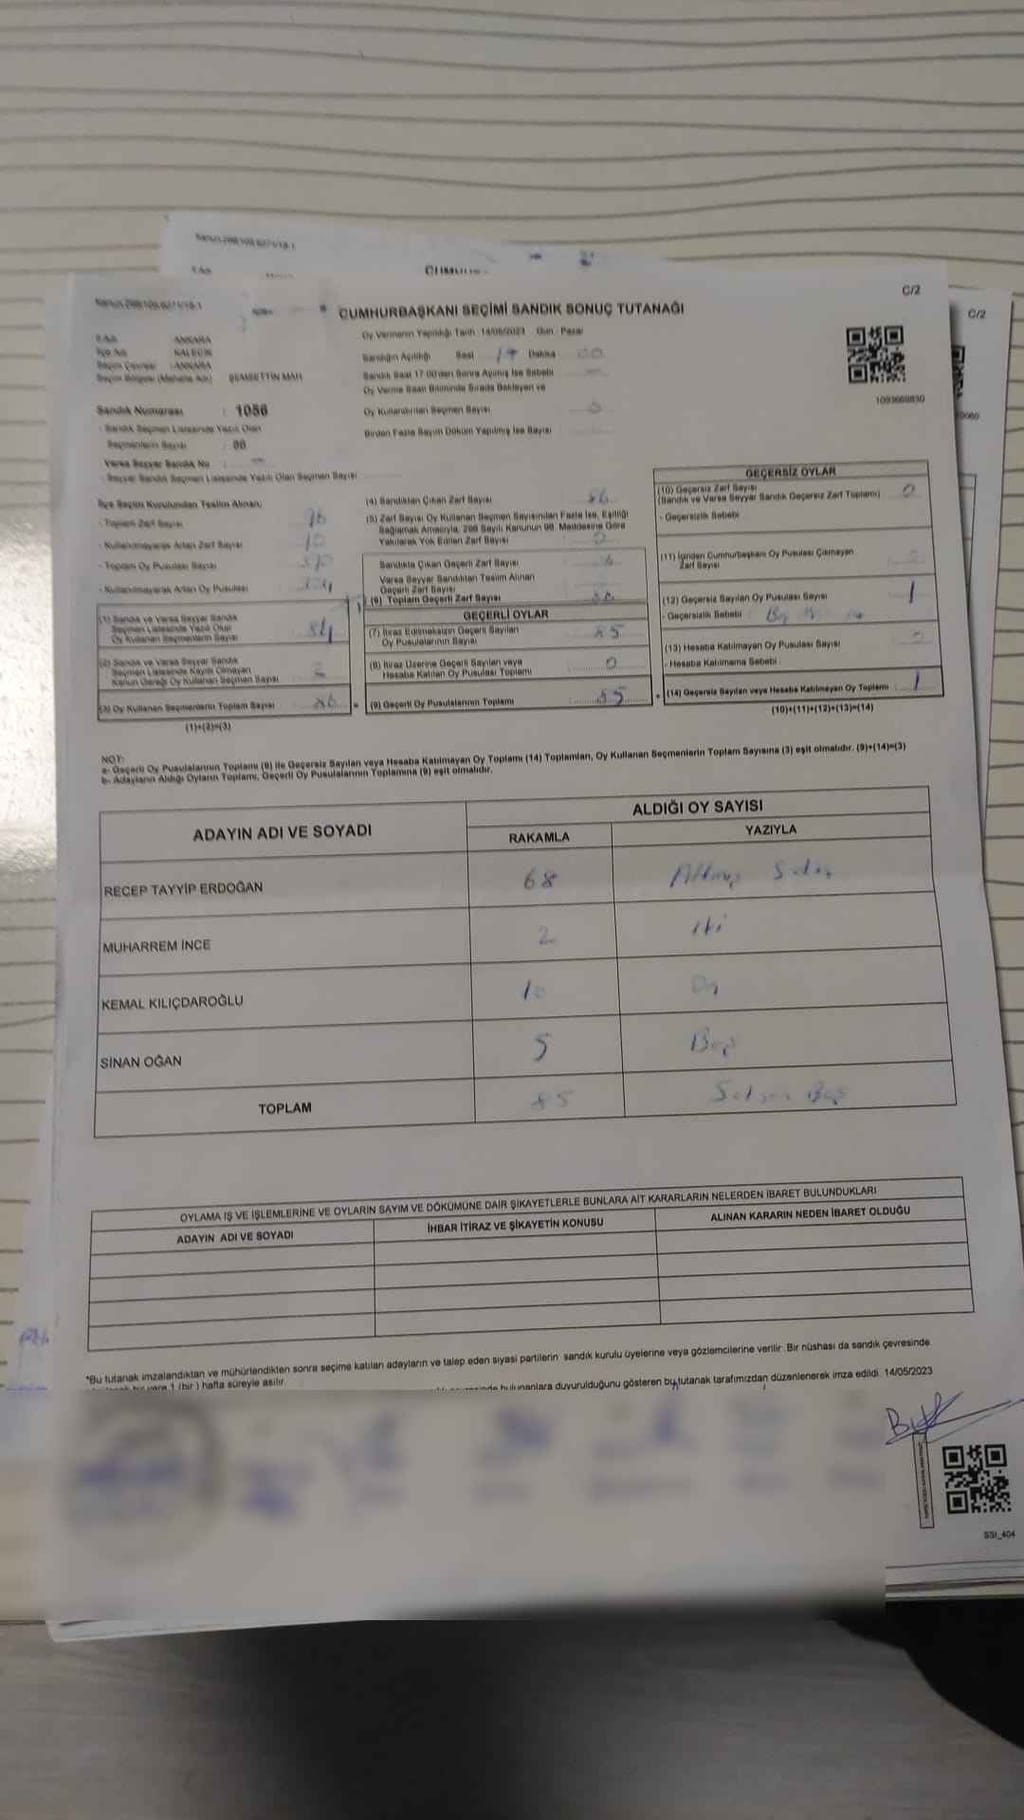 C/2
C/2
CUMHURBAŞKANI SEÇİMİ SANDIK SONUÇ TUTANAĞI
Oy Vermenin Yapıldığı Tarih 14/05/2023 Gün Pazar
İl Adı ANKARA
İlçe Adı KALECİK
Seçim Çevresi ANKARA
Seçim Bölgesi (Mahalle Adı) ŞEMSETTİN MAH
Sandığın Açıldığı Saat 17 Dakika 00
Sandık Saat 17.00'den Sonra Açılmış İse Sebebi
Oy Verme Saati Bitiminde Sırada Bekleyen ve
Oy Kullandırılan Seçmen Sayısı
Birden Fazla Sayım Döküm Yapılmış İse Sayısı
1093669830
Sandık Numarası : 1056
- Sandık Seçmen Listesinde Yazılı Olan
Seçmenlerin Sayısı
Varsa Seyyar Sandık No
- Seyyar Sandık Seçmen Listesinde Yazılı Olan Seçmen Sayısı
İlçe Seçim Kurulundan Teslim Alınan;
- Toplam Zarf Sayısı
- Kullanılmayarak Artan Zarf Sayısı
- Toplam Oy Pusulası Sayısı
- Kullanılmayarak Artan Oy Pusulası
(1) Sandık ve Varsa Seyyar Sandık
Seçmen Listesinde Yazılı Olup
Oy Kullanan Seçmenlerin Sayısı 84
(2) Sandık ve Varsa Seyyar Sandık
Seçmen Listesinde Kayıtlı Olmayan
Kanun Gereği Oy Kullanan Seçmen Sayısı 2
(3) Oy Kullanan Seçmenlerin Toplam Sayısı 86
(1)+(2)=(3)
(4) Sandıktan Çıkan Zarf Sayısı 86
(5) Zarf Sayısı Oy Kullanan Seçmen Sayısından Fazla İse, Eşitliği
Sağlamak Amacıyla, 298 Sayılı Kanunun 98. Maddesine Göre
Yakılarak Yok Edilen Zarf Sayısı 0
Sandıkta Çıkan Geçerli Zarf Sayısı
Varsa Seyyar Sandıktan Teslim Alınan
Geçerli Zarf Sayısı
(6) Toplam Geçerli Zarf Sayısı
GEÇERLİ OYLAR
(7) İtiraz Edilmeksizin Geçerli Sayılan
Oy Pusulalarının Sayısı 85
(8) İtiraz Üzerine Geçerli Sayılan veya
Hesaba Katılan Oy Pusulası Toplamı 0
(9) Geçerli Oy Pusulalarının Toplamı 85
GEÇERSİZ OYLAR
(10) Geçersiz Zarf Sayısı
(Sandık ve Varsa Seyyar Sandık Geçersiz Zarf Toplamı) 0
- Geçersizlik Sebebi
(11) İçinden Cumhurbaşkanı Oy Pusulası Çıkmayan
Zarf Sayısı
(12) Geçersiz Sayılan Oy Pusulası Sayısı 1
- Geçersizlik Sebebi
(13) Hesaba Katılmayan Oy Pusulası Sayısı
- Hesaba Katılmama Sebebi
(14) Geçersiz Sayılan veya Hesaba Katılmayan Oy Toplamı 1
(10)+(11)+(12)+(13)=(14)
NOT:
a- Geçerli Oy Pusulalarının Toplamı (9) ile Geçersiz Sayılan veya Hesaba Katılmayan Oy Toplamı (14) Toplamları, Oy Kullanan Seçmenlerin Toplam Sayısına (3) eşit olmalıdır. (9)+(14)=(3)
b- Adayların Aldığı Oyların Toplamı, Geçerli Oy Pusulalarının Toplamına (9) eşit olmalıdır.
ADAYIN ADI VE SOYADI ALDIĞI OY SAYISI
RAKAMLA YAZIYLA
RECEP TAYYİP ERDOĞAN 68 Altmış Sekiz
MUHARREM İNCE 2 iki
KEMAL KILIÇDAROĞLU 10 On
SİNAN OĞAN 5 Beş
TOPLAM 85 Seksen Beş
OYLAMA İŞ VE İŞLEMLERİNE VE OYLARIN SAYIM VE DÖKÜMÜNE DAİR ŞİKAYETLERLE BUNLARA AİT KARARLARIN NELERDEN İBARET BULUNDUKLARI
ADAYIN ADI VE SOYADI İHBAR İTİRAZ VE ŞİKAYETİN KONUSU ALINAN KARARIN NEDEN İBARET OLDUĞU
*Bu tutanak imzalandıktan ve mühürlendikten sonra seçime katılan adayların ve talep eden siyasi partilerin sandık kurulu üyelerine veya gözlemcilerine verilir. Bir nüshası da sandık çevresinde
1 (bir) hafta süreyle asılır.
bulunanlara duyurulduğunu gösteren bu tutanak tarafımızdan düzenlenerek imza edildi. 14/05/2023
SSI_404